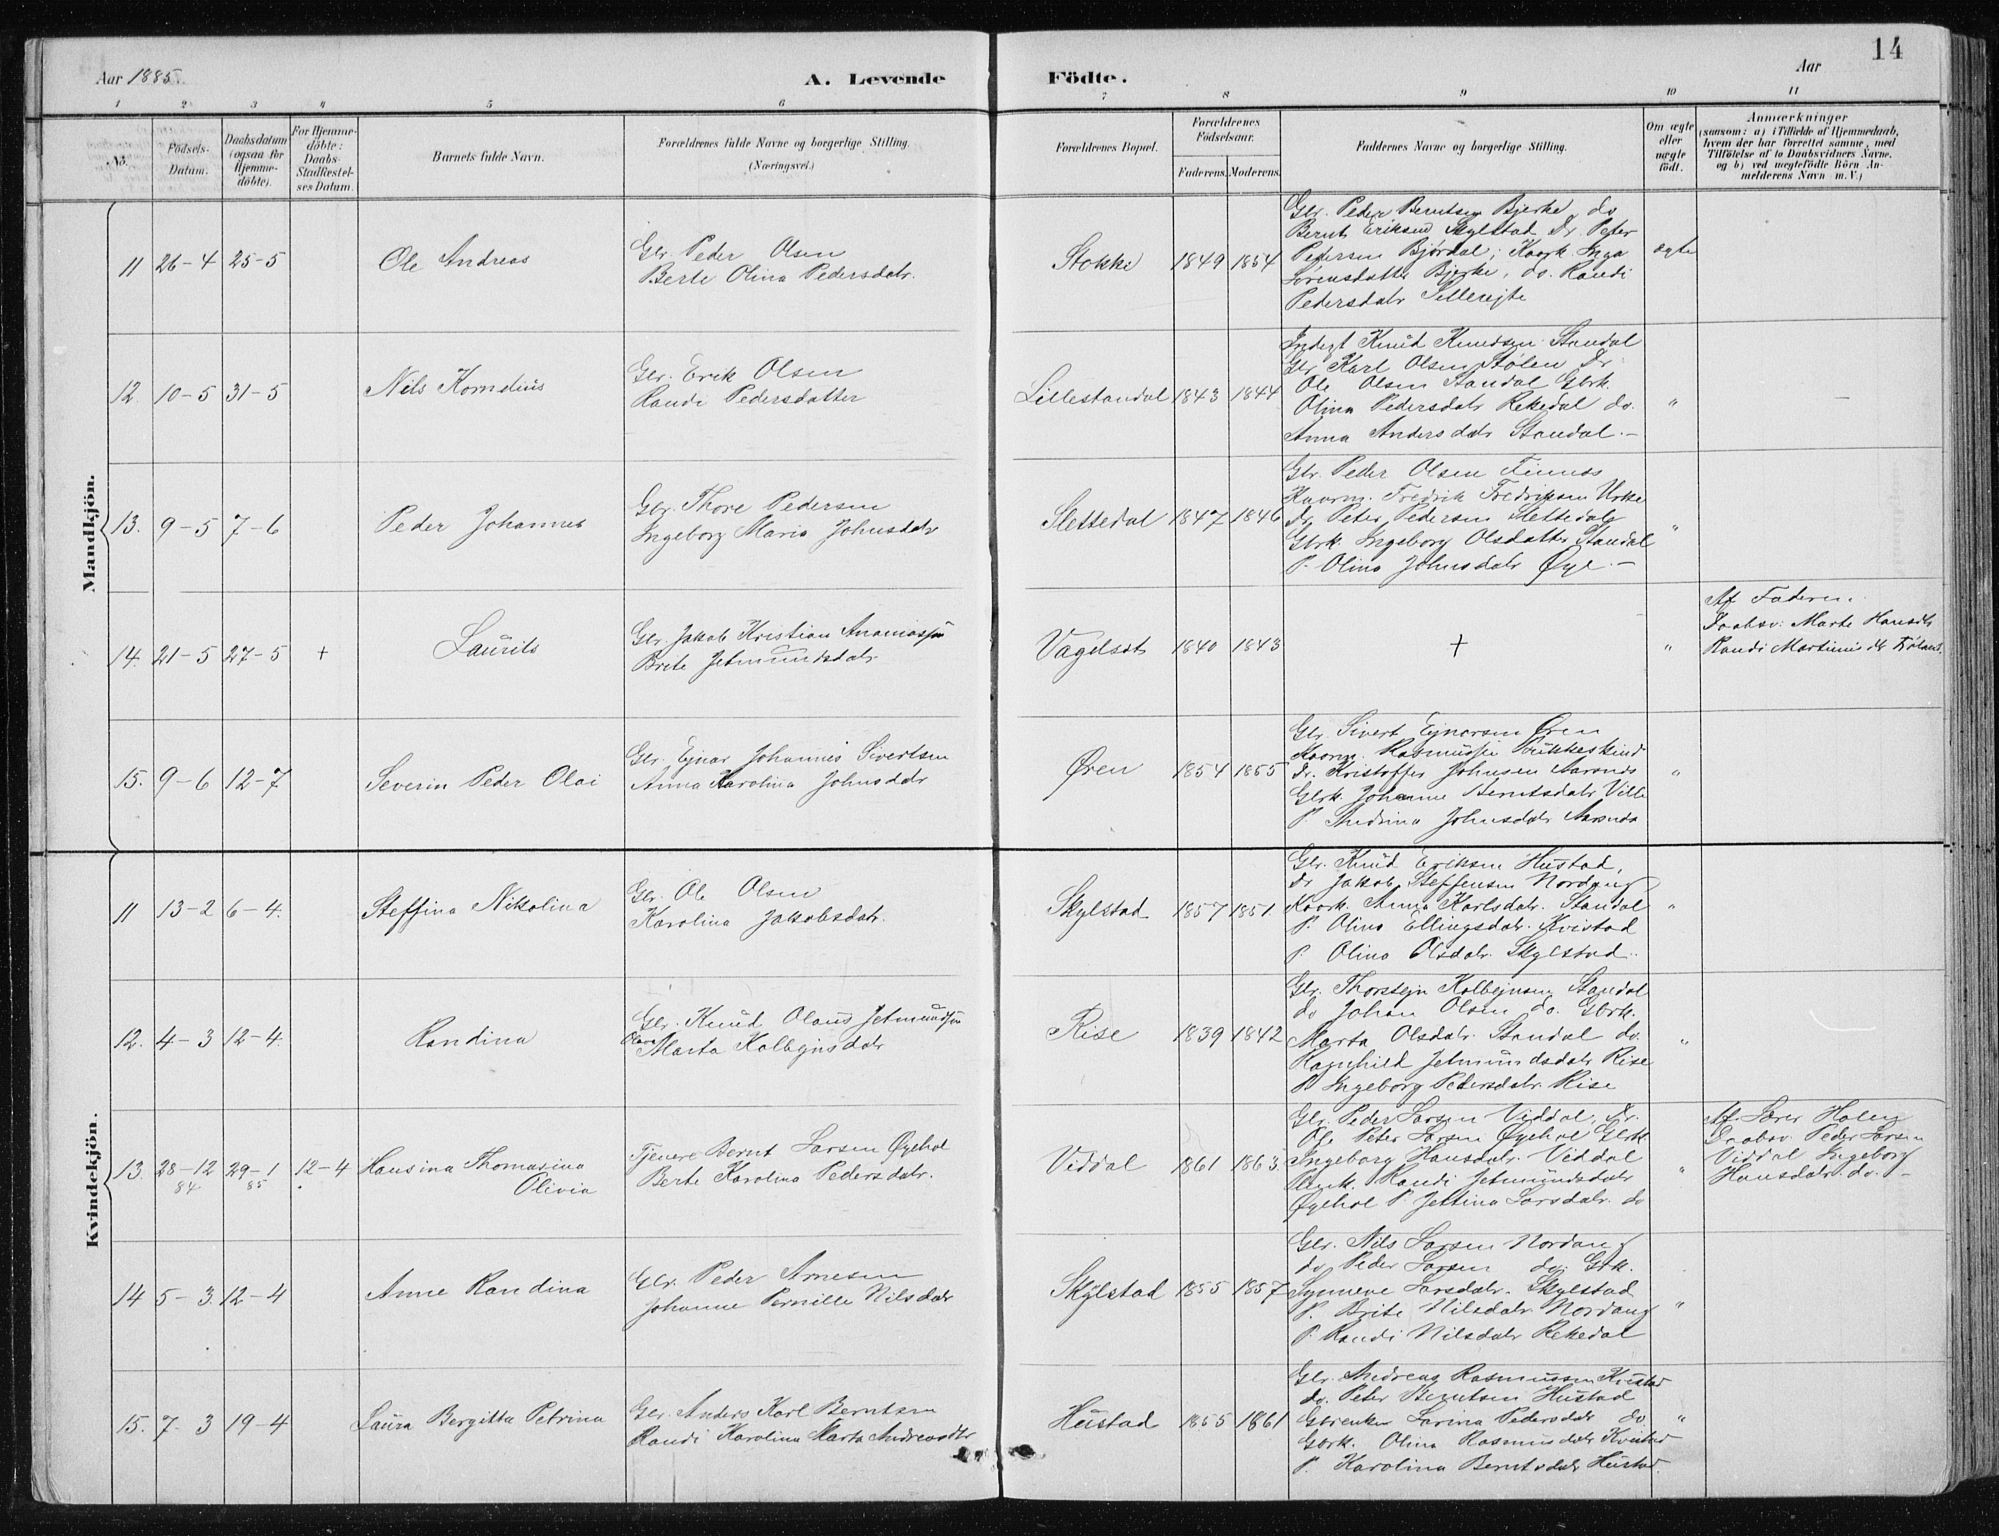 14
Aar 1885. A. Levende Födte. Aar
1 2 3 4 5 6 7 8 9 10 11
No. Födsels-Datum. Daabsdatum (ogsaa for Hjemme-döbte). For Hjemme-döbte: Daabs-Stadfæstel-ses Datum. Barnets fulde Navn. Forældrenes fulde Navne og borgerlige Stilling. (Næringsvei.) Forældrenes Bopæl. Forældrenes Födselsaar. Faderens. Moderens. Faddernes Navne og borgerlige Stilling. Om ægte eller uægte födt. Anmærkninger (saasom: a) i Tilfælde af Hjemmedaab, hvem der har forrettet samme, med Tilföielse af to Daabsvidners Navne, og b) ved uægtefödte Börn An-melderens Navn m. V.)
Mandkjön.
11 26-4 25-5 Ole Andreas
Gbr. Peder Olsen
Berte Olina Pedersdatr.
Stokke 1849 1854
Gbr. Peder Berntsen Bjerke, do
Bernt Eriksen Skylstad Dr. Peter
Petersen Bjørdal; Kaark Inga
Sørensdatter Bjerke, do. Randi
Pedersdatr
ægte
12. 10-5 31-5 Nils Kornelius
Gbr. Erik Olsen
Randi Pedersdatter
Lillestandal 1843 1844
Knud Knudsen Standal
Gbr Karl Olsen Stølen Dr.
Ole Olsen Standal Gbrk.
Olina Pedersdatr Rekedal do.
Anna Andersdatr Standal.-
"
13. 9-5 7-6 Peder Johannes
Gbr. Thore Pedersen
Ingeborg Maria Johnsdatr
Slettedal 1847 1846
Gbr. Peder Olsen Finnes
Kaarm. Fredrik Fredriksen Urke
Dr. Peter Pedersen Slettedal
Gbrk. Ingeborg Olsdatter Standal
P. Olina Johnsdatr Øye.-
"
14. 21-5 27-5 + Laurits
Gbr. Jakob Kristian Ananiassen
Brite Jetmundsdatr
1840 1843 + "
Af Faderen.
Daabsv. Marte Hansdtr
Randi
15. 9-6 12-7 Severin Peder Olai
Gbr. Ejnar Johannes Sivertsen
Anna Karolina Johnsdatr
Øren 1854 1855
Gbr Sivert Ejnarsen Øren
Kaarm. Rasmus
Dr. Kristoffer Johnsen Aarsnes
Gbrk. Johanne Berntsdatr Ville
P. Andrina Johnsdatr Aarsnes
"
Kvindekjön.
11 13-2 6-4. Steffina Nikolina
Gbr. Ole Olsen
Karolina Jakobsdatr.
Skylstad 1857 1851
Gbr. Knud Eriksen Hustad,
Dr Jakob Steffensen Nordang
Kaark. Anna Karlsdatr. Standal
P. Olina Ellingsdatr. Kvistad
P. Olina Olsdatr. Skylstad.
"
12. 4-3 12-4. Randina
Gbr. Knud Olaus Jetmundsen
Olava
Marta Kolbejnsdatr
Rise 1839 1842
Gbr. Thorstejn Kolbejnsen Standal
do Johan Olsen do. Gbrk.
Marta Olsdatr. Standal do.
Ragnhild Jetmundsdatr Rise
P Ingeborg Pedersdatr. Rise
"
13. 28-12 84 29-1 85 12-4 Hansina Thomasina
Olivia
Tjener Bernt Larsen Øyehol
Berte Karolina Pedersdatr.
Viddal 1861 1863
Gbr. Peder Larsen Viddal, Dr.
Ole Peter Larsen Øyehol Gbrk
Ingeborg Hansdatr. Viddal
Randi Jetmundsdatr
Øyehol P. Jettina Larsdatr. do
"
Af Lærer Holen
Daabsv. Peder Larsen
Viddal Ingeborg
Hansdatr. do.-
14 5-3. 12-4 Anne Randina
Gbr. Peder Arnesen
Johanne Pernille Nilsdatr
Skylstad 1855 1857
Gbr. Nils Larsen Nordang
do Peder Larsen do; Gbk.
Synneve Larsdatr. Skylstad
P. Brite Nilsdatr. Nordang
P. Randi Nilsdatr Rekedal
"
15. 7-3 19-4 Laura Bergitta Petrina
Gbr. Anders Karl Berntsen
Randi Karolina Marta Andreasdtr
Hustad 1855 1861
Gbr. Andreas Rasmussen
do. Peter Berntsen Hustad
Gbrenken Larina Pedersdatr do
Gbrk. Olina Rasmusdatr Kvistad
P. Karolina Berntsdatr Hustad.
"